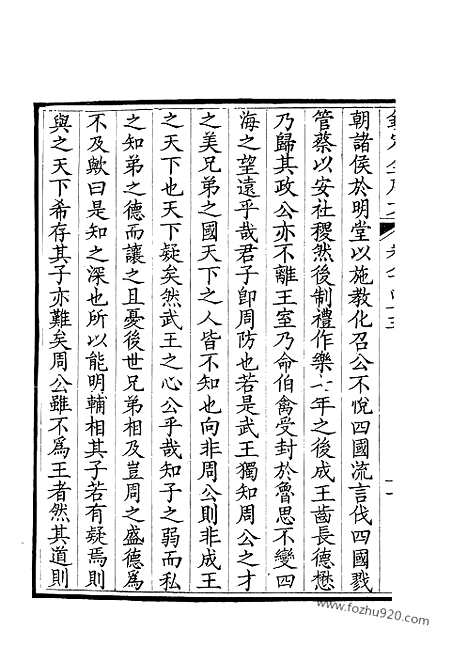 朝諸侯於明堂以施教化召公不悅四國流言伐四國戮
管蔡以安社稷然後制禮作樂七年之後成王齒長德懋
乃歸其政公亦不離王室乃命伯禽受封於魯思不變四
海之望遠乎哉君子卽周防也若是武王獨知周公之才
之美兄弟之國天下之人皆不知也向非周公則非成王
之天下也天下疑矣然武王之心公乎哉知子之弱而私
之知弟之德而讓之且憂後世兄弟相及豈周之盛德爲
不及歟曰是知之深也所以能明輔相其子若有疑焉則
與之天下希存其子亦難矣周公雖不爲王者然其道則
www.fozhu920.com